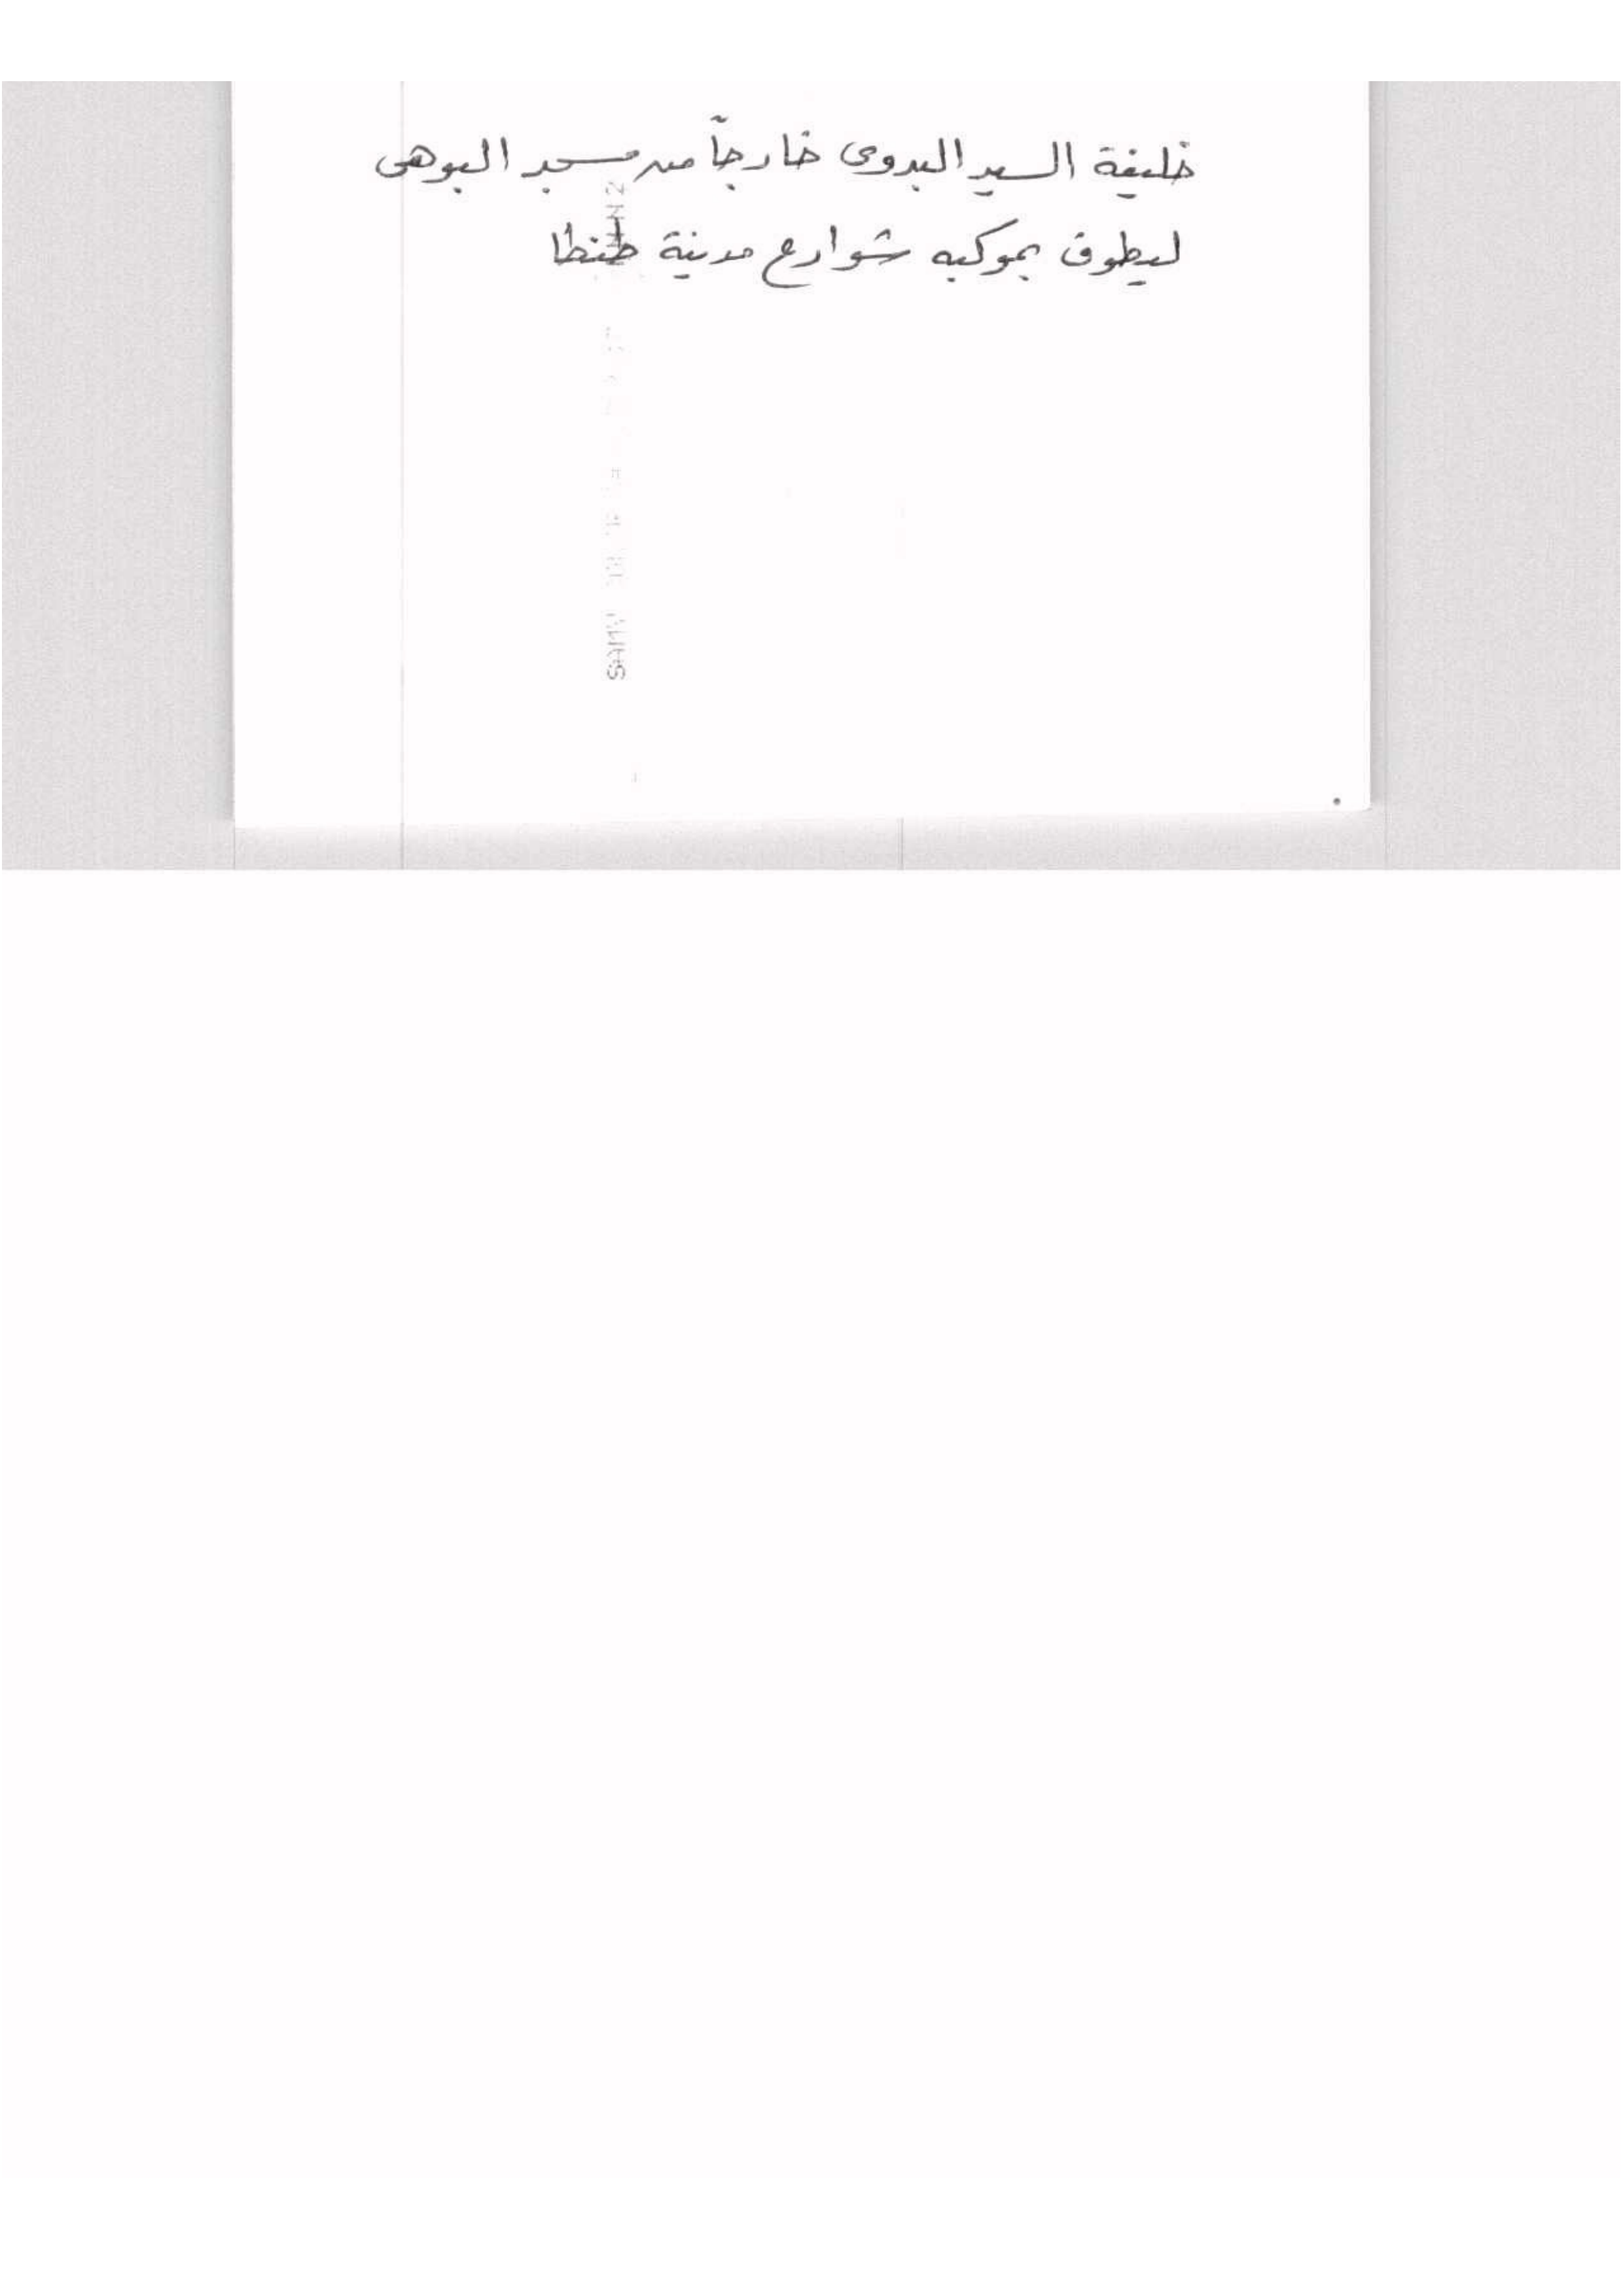 خليفة السيد البدوى خارجاً من مسجد البوهى
ليطوف بموكبه شوارع مدينة طنطا